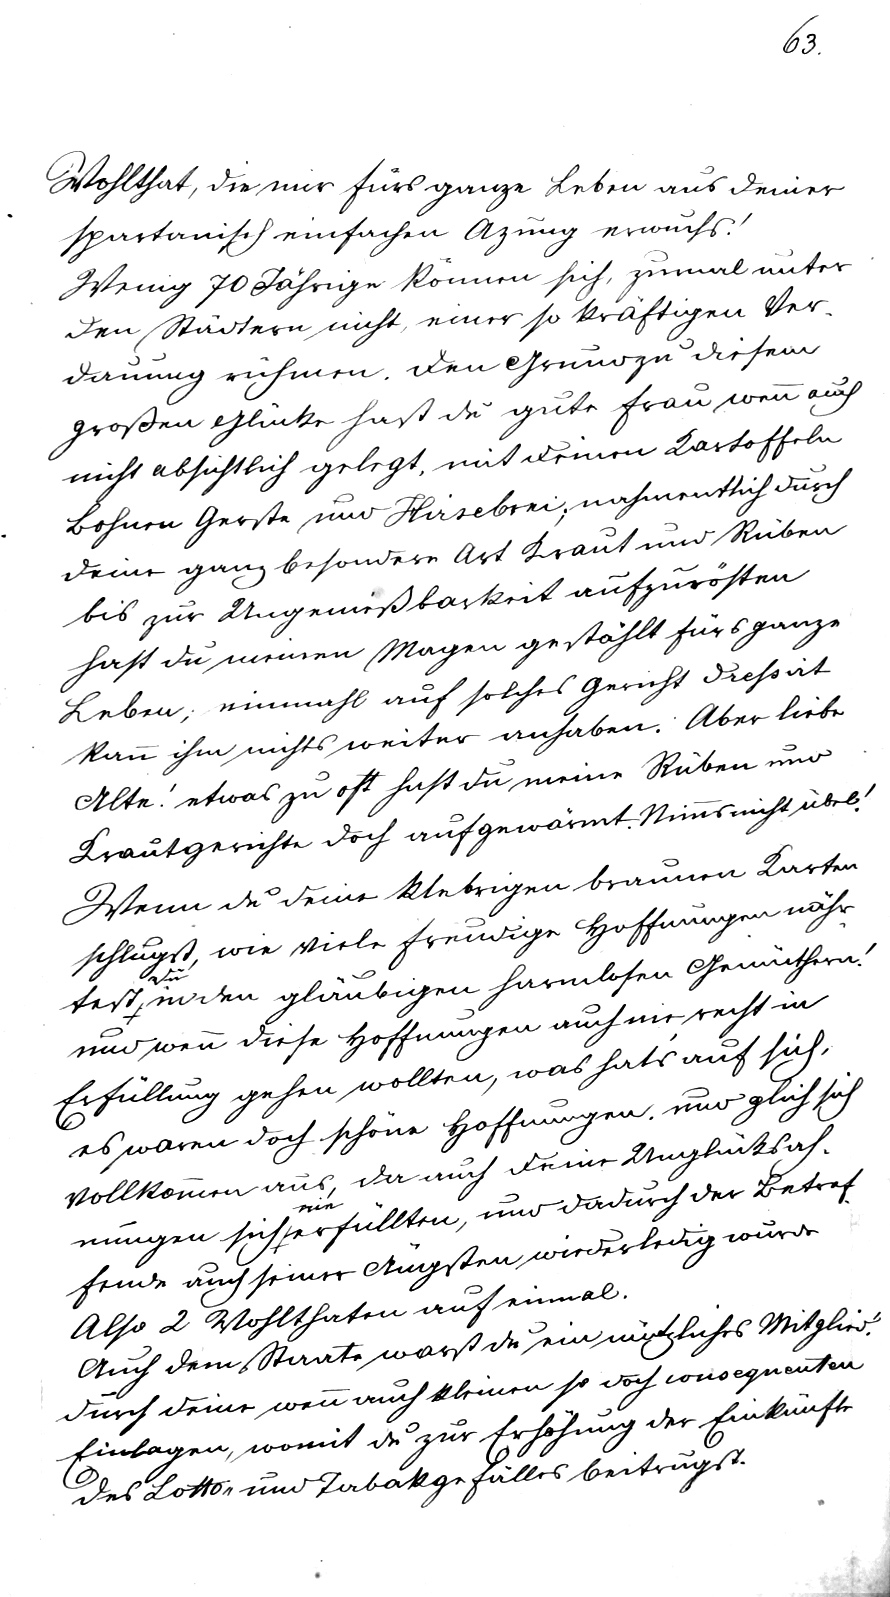 63.
Wohlthat, die mir fürs ganze Leben aus deiner
spartanisch einfachen Azung erwuchs!
Wenig 70 Jährige können sich, zumal unter
den Städtern nicht, einer so kräftigen Ver-
dauung rühmen. Den Grund zu diesem
großen Glücke hast du gute Frau wen̄ auch
nicht absichtlich gelegt, mit deinen Kartoffeln
Bohnen Gerste und Hirsebrei; nahmentlich durch
deine ganz besondere Art Kraut und Rüben
bis zur Ungenießbarkeit aufzurösten
hast du meinen Magen gestählt fürs ganze
Leben; einmahl auf solches Gericht dressirt
kan̄ ihm nichts weiter anhaben. Aber liebe
Alte! etwas zu oft hast du meine Rüben und
Krautgerichte doch aufgewärmt. Nim̄s nicht übel!
Wenn du deine klebrigen braunen Karten
schlugst, wie viele freudige Hoffnungen nähr-
test du in den gläubigen harmlosen Gemüthern!
und wen̄ diese Hoffnungen auch nie recht in
Erfüllung gehen wollten, was hat's auf sich,
es waren doch schöne Hoffnungen. und glich sich
vollkom̄en aus, da auch deine Unglücksah-
nungen sich nie erfüllten, und dadurch der Betref-
fende auch seiner Ängsten wieder ledig wurde
Also 2 Wohlthaten auf einmal.
Auch dem Staate warst du ein nützliches Mitglied!
durch deine wen̄ auch kleinen so doch consequenten
Einlagen, womit du zur Erhöhung der Einkünfte
des Lotto- und Tabakgefälles beitrugst.